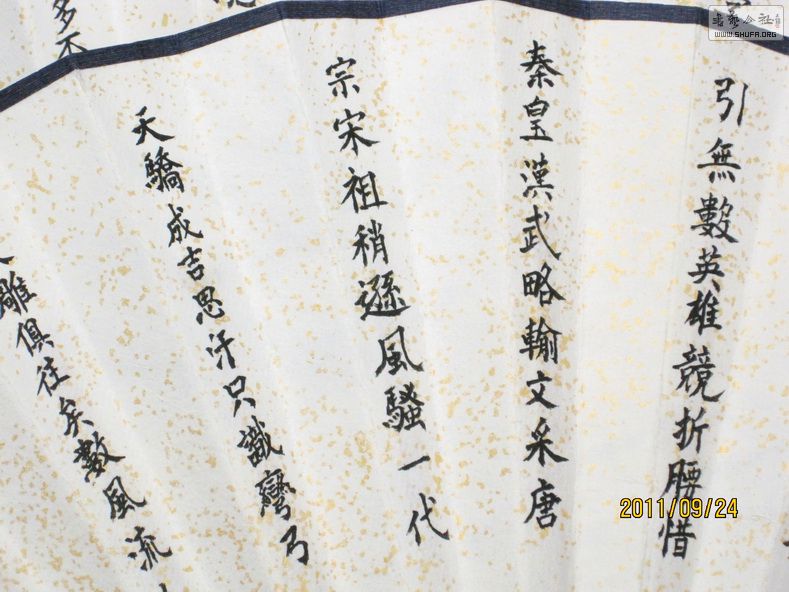 引無數英雄競折腰惜
秦皇漢武略輸文采唐
宗宋祖稍遜風騷一代
天驕成吉思汗只識彎弓
雕俱往矣數風流
多不
書藝公社
WWW.SHUFA.ORG
2011/09/24